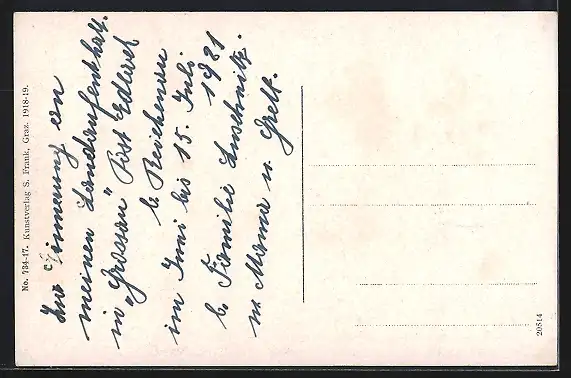 No. 734-17. Kunstverlag S. Frank, Graz. 1918-19.
Zur Erinnerung an
meinen Landaufenthalt
in "Grossau" Post Edlach
b. Reichenau
im Juni bis 15. Juli
b. Familie 1931
u. Mama u. Gretl.
20514